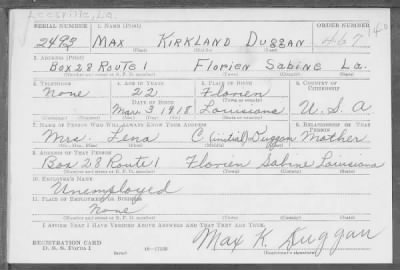 Leesville, La.
SERIAL NUMBER 1. NAME (Print) ORDER NUMBER
2493 MAX KIRKLAND DUGGAN 467
(First) (Middle) (Last)
2. ADDRESS (Print)
BOX 28 ROUTE 1 FLORIEN SABINE LA.
(Number and street or R. F. D. number) (Town) (County) (State)
3. TELEPHONE 4. AGE IN YEARS 5. PLACE OF BIRTH 6. COUNTRY OF CITIZENSHIP
None 22 Florien
DATE OF BIRTH (Town or county)
Mar. 3 1918 Louisiana U. S. A
(Mo.) (Day) (Yr.) (State or country)
7. NAME OF PERSON WHO WILL ALWAYS KNOW YOUR ADDRESS 8. RELATIONSHIP OF THAT PERSON
Mrs. Lena C (initial) Duggan Mother
(Mr., Mrs., Miss) (First) (Middle) (Last)
9. ADDRESS OF THAT PERSON
Box 28 Route 1 Florien Sabine Louisiana
(Number and street or R. F. D. number) (Town) (County) (State)
10. EMPLOYER'S NAME
Unemployed
11. PLACE OF EMPLOYMENT OR BUSINESS
None
(Number and street or R. F. D. number) (Town) (County) (State)
I AFFIRM THAT I HAVE VERIFIED ABOVE ANSWERS AND THAT THEY ARE TRUE.
REGISTRATION CARD
D. S. S. Form 1 (over) 16—17105 Max K. Duggan